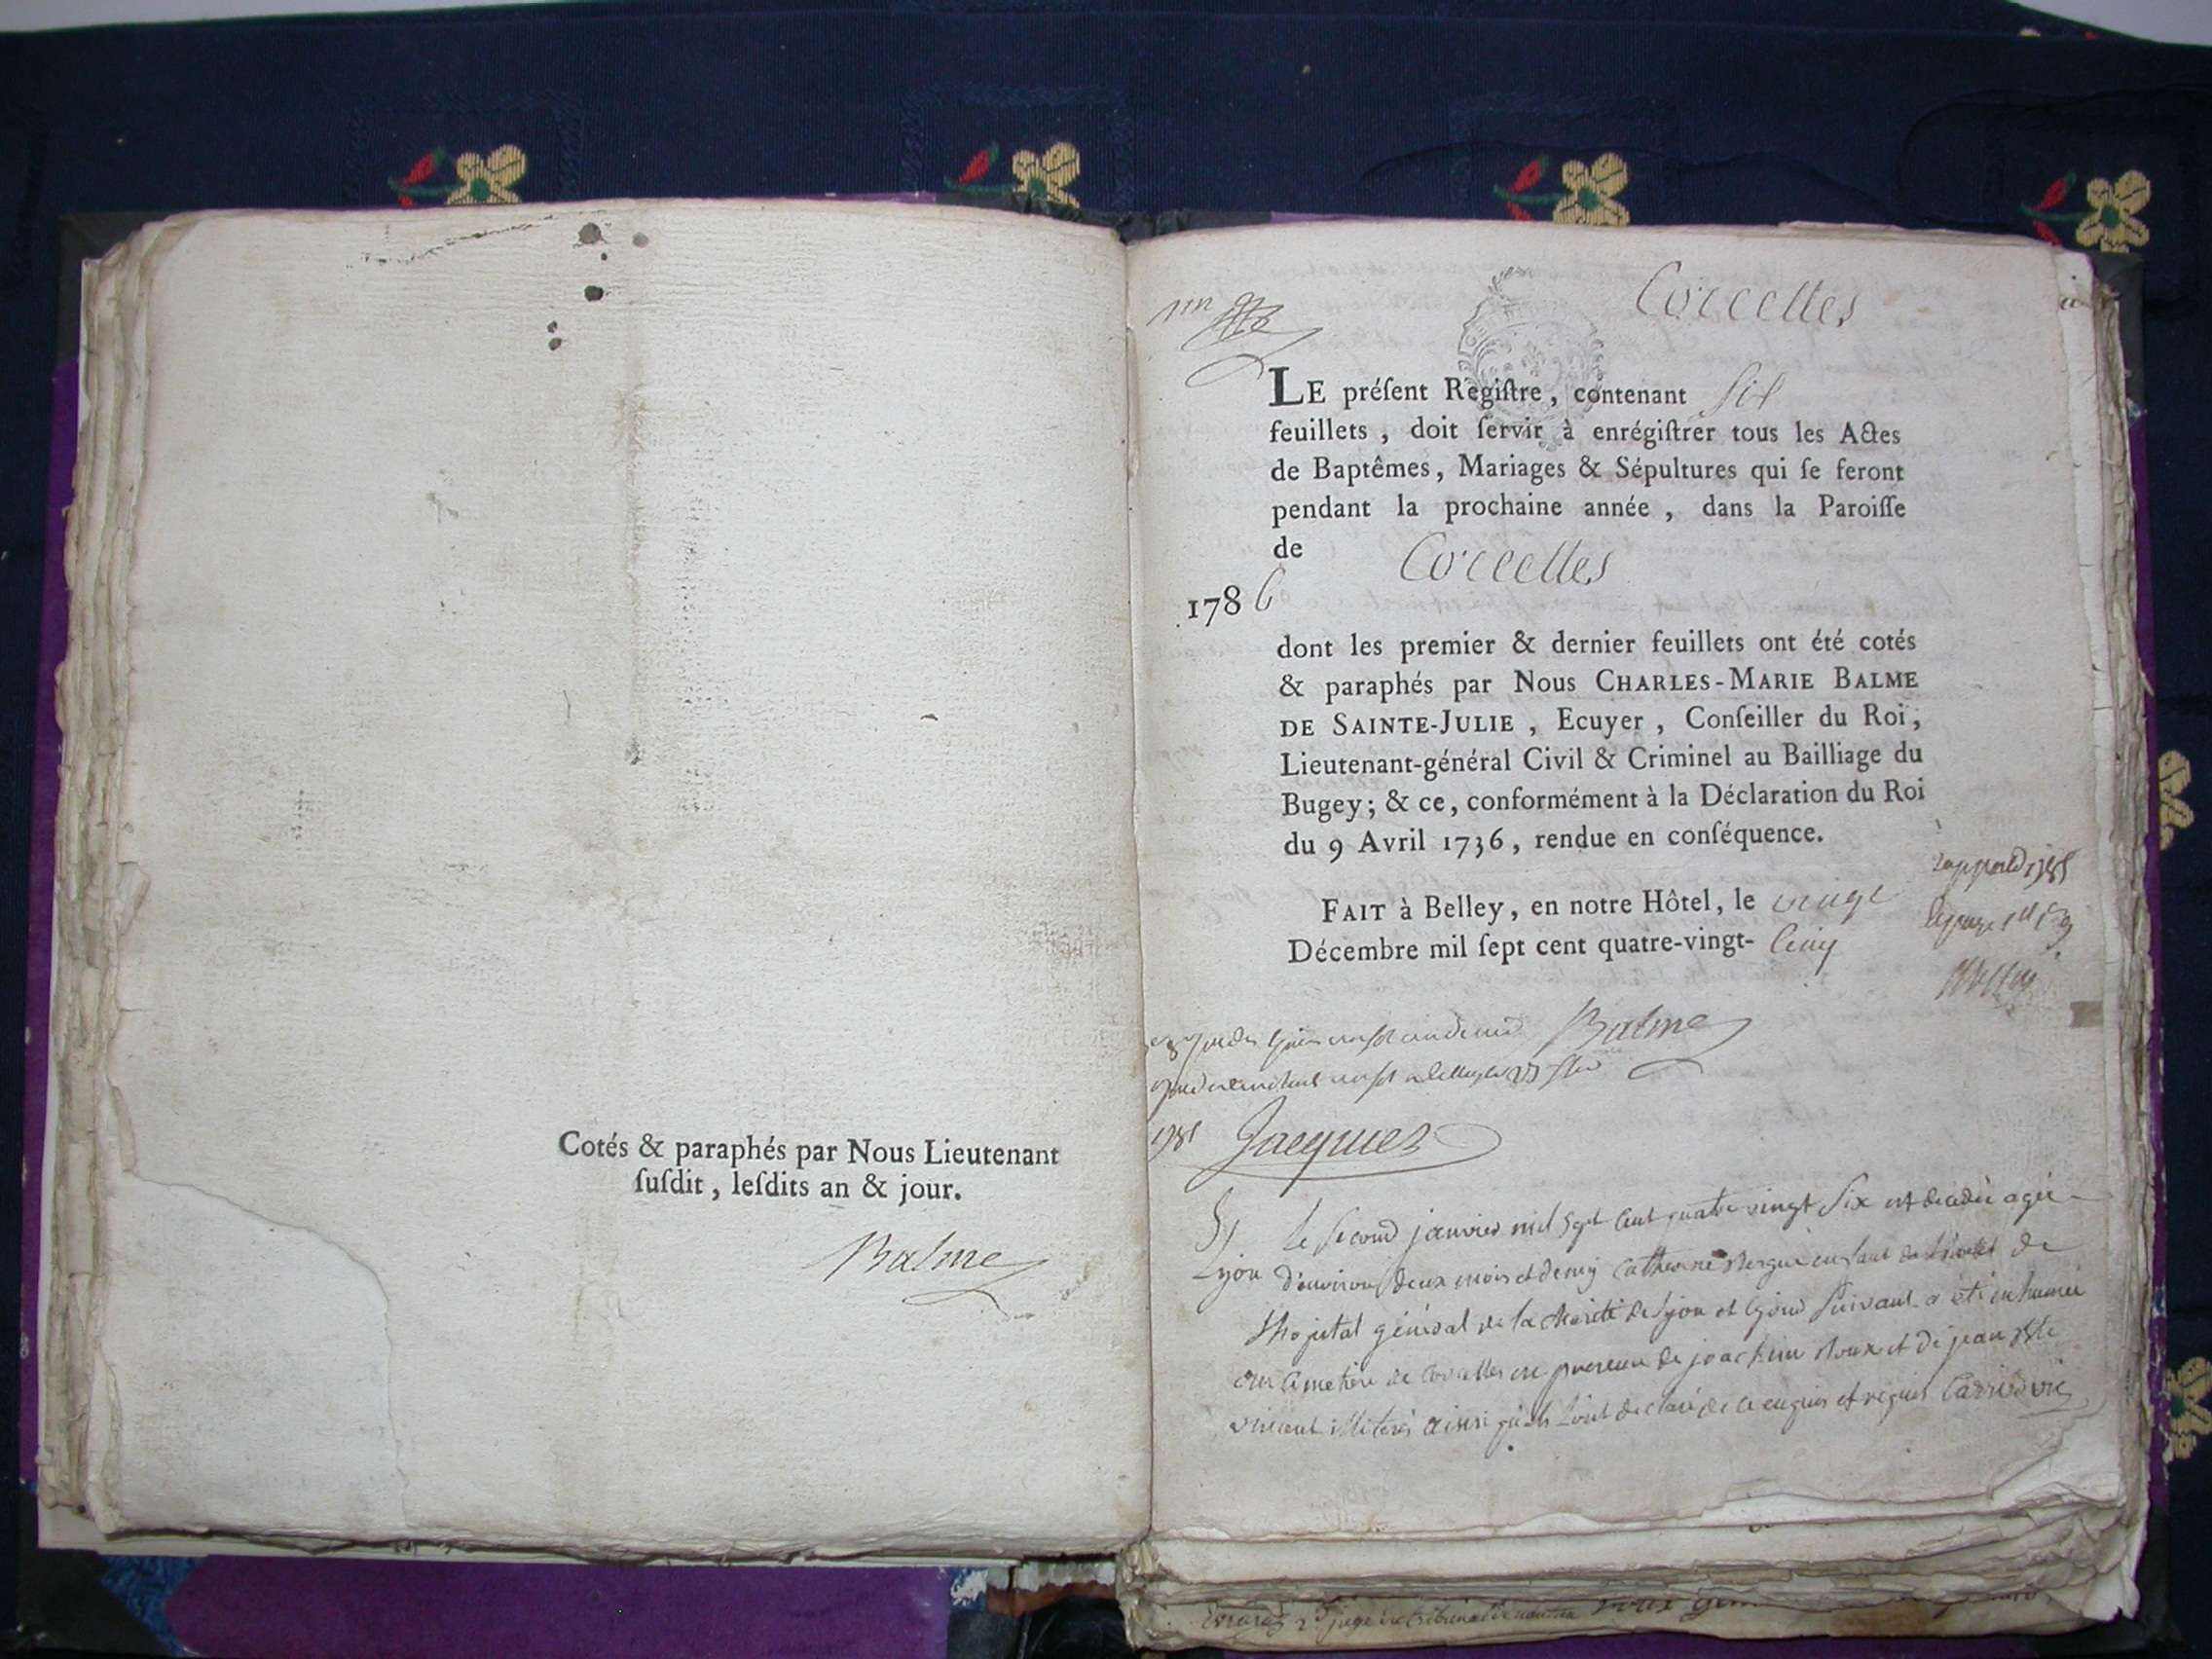 Cotés & paraphés par Nous Lieutenant
ſuſdit, leſdits an & jour.
Balme
Corcelles
LE préſent Regiſtre, contenant Six
feuillets, doit ſervir à enrégiſtrer tous les Actes
de Baptêmes, Mariages & Sépultures qui ſe feront
pendant la prochaine année, dans la Paroiſſe
de Corcelles
1786
dont les premier & dernier feuillets ont été cotés
& paraphés par Nous CHARLES-MARIE BALME
DE SAINTE-JULIE, Ecuyer, Conſeiller du Roi,
Lieutenant-général Civil & Criminel au Bailliage du
Bugey; & ce, conformément à la Déclaration du Roi
du 9 Avril 1736, rendue en conſéquence.
FAIT à Belley, en notre Hôtel, le vingt
Décembre mil ſept cent quatre-vingt- Cinq
Balme
Jacques
Le second janvier mil sept cent quatre vingt Six est decedée agée
Lyon d'environ deux mois et demy Catherine enfant de
Lhopital général de la charité de Lyon et le jour suivant a été inhumée
au Cimetiere de corcelles en presence de joachim Roux et de jean Bte
vincent illiterés ainsi qu'ils l'ont declaré de ce enquis et requis